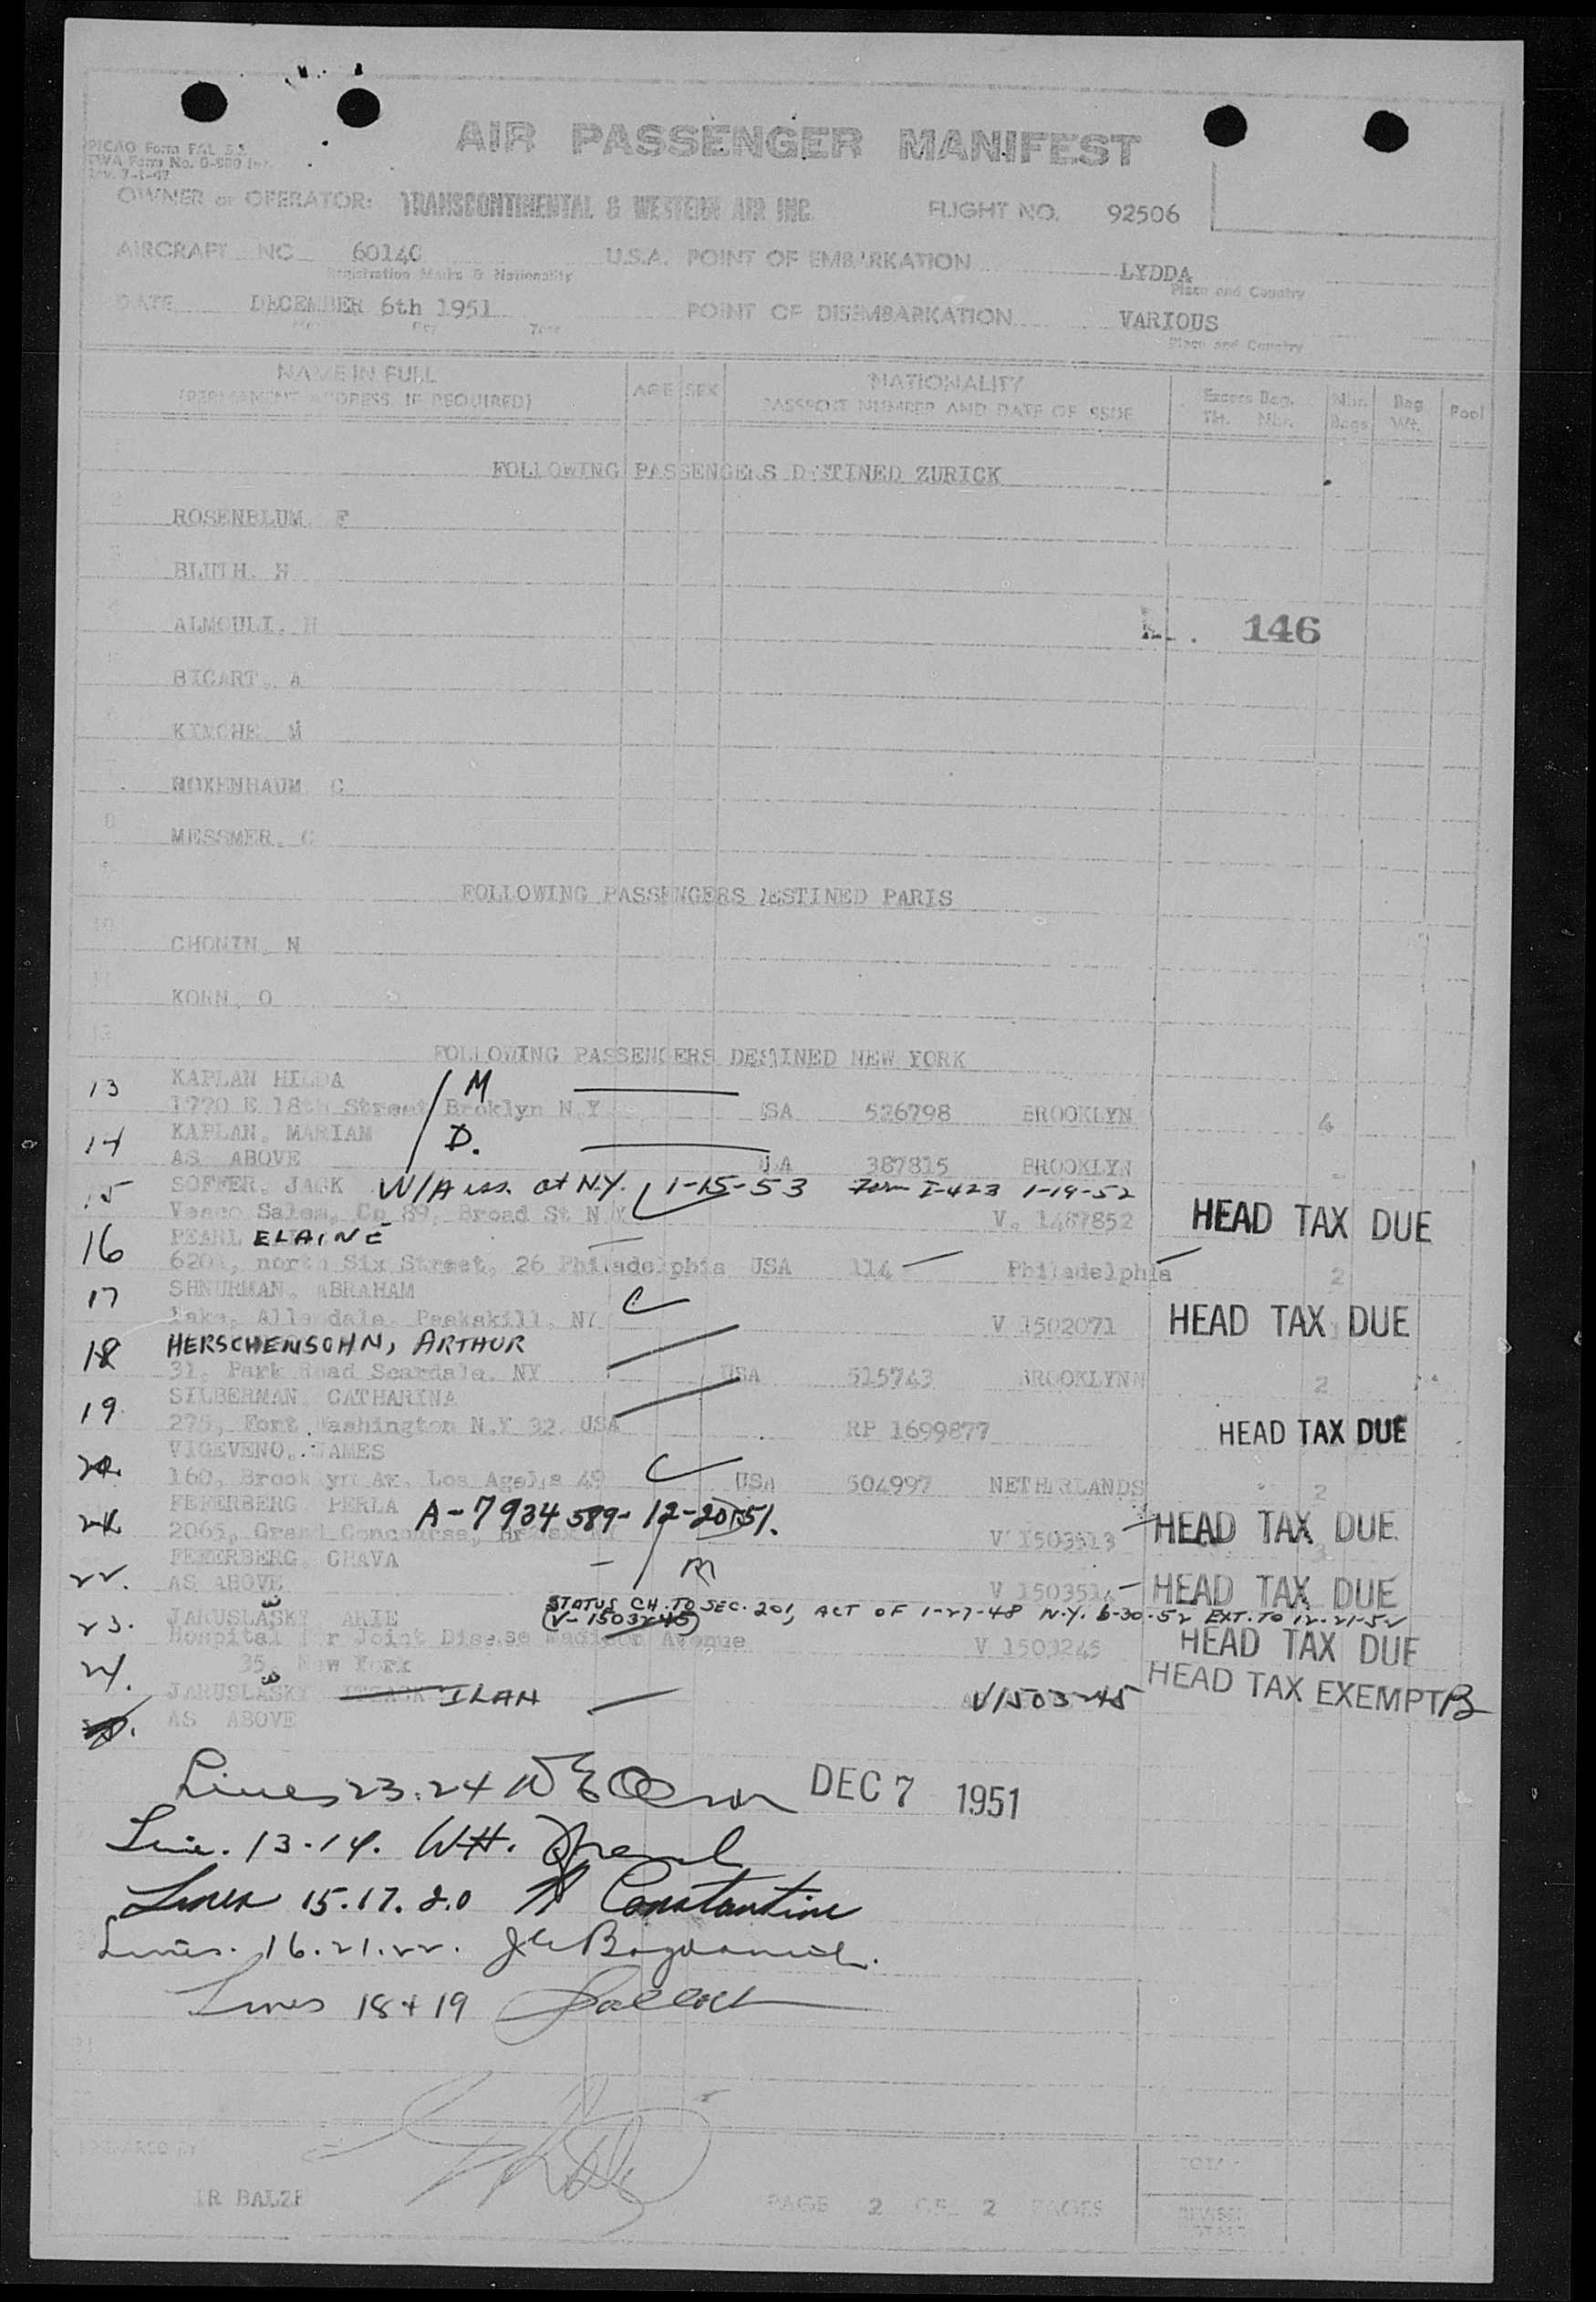 AIR PASSENGER MANIFEST
PICAO Form FAL
TWA Form No.
Rev. 7-1-47
OWNER or OPERATOR: TRANSCONTINENTAL & WESTERN AIR INC. FLIGHT NO. 92506
AIRCRAFT NC 60140 U.S.A. POINT OF EMBARKATION LYDDA
Registration Marks & Nationality Place and Country
DATE DECEMBER 6th 1951 POINT OF DISEMBARKATION VARIOUS
Place and Country
NAME IN FULL AGE SEX NATIONALITY Excess Bag. Nbr. Bag Pool
(PERMANENT ADDRESS, IF REQUIRED) PASSPORT NUMBER AND DATE OF ISSUE Tkt. Nbr. Bags Wt.
FOLLOWING PASSENGERS DESTINED ZURICK
ROSENBLUM. F
BLUTH. H
ALMOULI. H 146
BICART. A
KIMCHE M
C
MESSMER. C
FOLLOWING PASSENGERS DESTINED PARIS
CHONIN. N
KORN. O
FOLLOWING PASSENGERS DESTINED NEW YORK
13 KAPLAN HILDA M
1770 E 18th Street Broklyn N.Y USA 526798 BROOKLYN 4
14 KAPLAN. MARIAM D.
AS ABOVE USA 387815 BROOKLYN
15 SOFFER. JACK W/A iss. at N.Y. 1-15-53 Form I-423 1-19-52
Sales, Co 89, Broad St N Y V. 1487852 HEAD TAX DUE
16 PEARL ELAINE
north Six Street, 26 Philadelphia USA 114 Philadelphia 2
17 SHNURMAN. ABRAHAM
Lake, Allendale. Peekskill. NY V 1502071 HEAD TAX DUE
18 HERSCHENSOHN, ARTHUR
31, Park Road Scardale. NY USA 515743 BROOKLYNN 2
19 SILBERMAN CATHARINA
275, Fort Washington N.Y 32. USA RP 1699877 HEAD TAX DUE
20. VIGEVENO. JAMES
160, Brooklyn Av. Los Ageles 49 USA 504997 NETHERLANDS 2
21. FEFERBERG PERLA A-7934589- 12-20-51.
2065, Grand Concourse, V 1503513 HEAD TAX DUE
22. FEFERBERG. CHAVA M
AS ABOVE V 1503514 HEAD TAX DUE
STATUS CH. TO SEC. 201, ACT OF 1-27-48 N.Y. 6-30-52 EXT. TO 12-21-52
23. JARUSLASKY ARIE (V-1503245)
Hospital for Joint Disease Madison Avenue V 1503245 HEAD TAX DUE
35, New York
24. JARUSLASKY ILAN V1503245 HEAD TAX EXEMPT
AS ABOVE
Lines 23.24 DEC 7 1951
Line. 13-14. W.H.
Lines 15.17.20 Constantine
Lines. 16.21.22.
Lines 18+19
PREPARED BY
PAGE 2 OF 2 PAGES